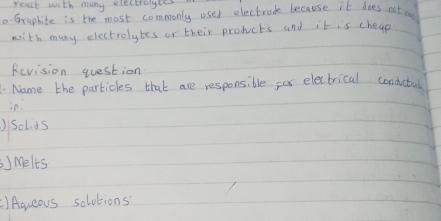 react with many electrolytes
o-Graphite is the most commonly used electrode because it does not
with many electrolytes or their products and it is cheap
Revision question
1. Name the particles that are responsible for electrical
in:
) Solids
) Melts
) Aqueous solutions